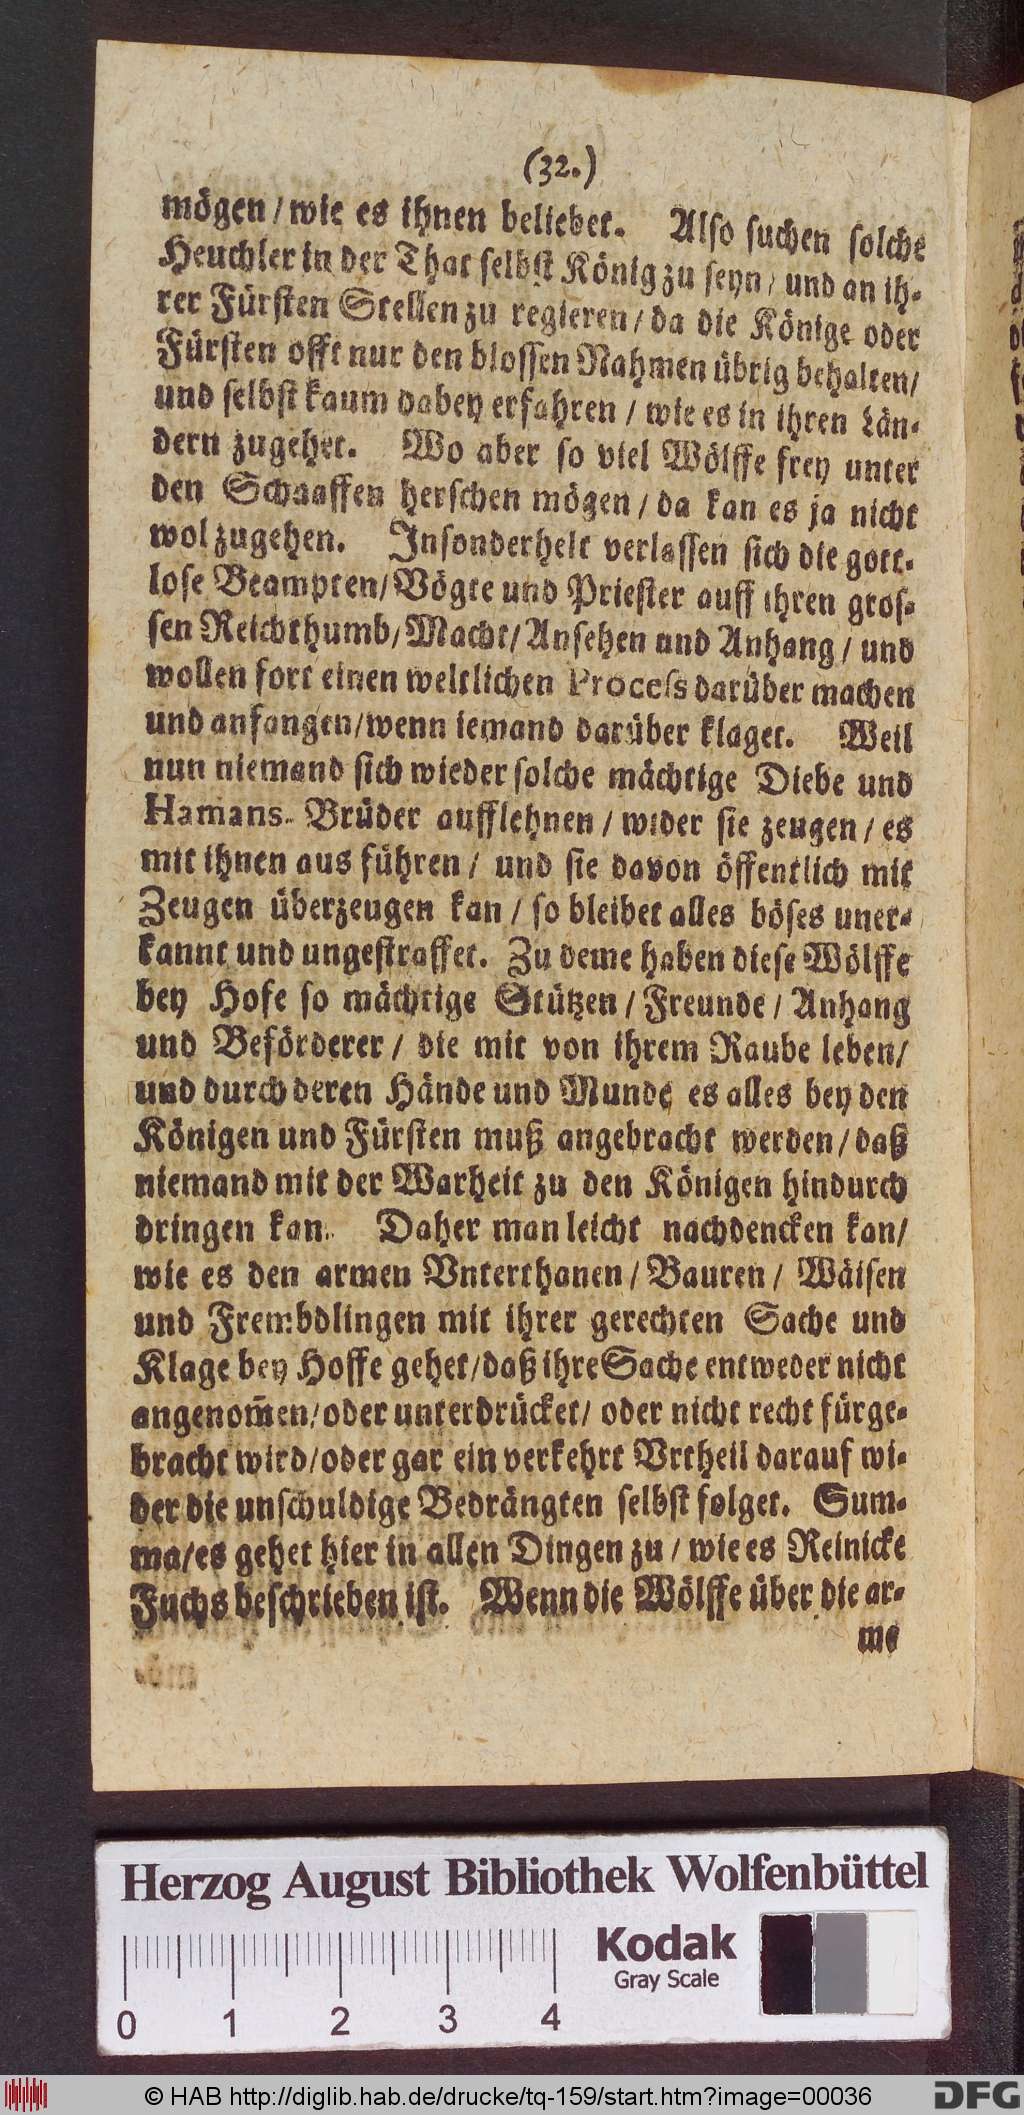 (32.)
mögen/wie es ihnen beliebet. Also suchen solche
Heuchler in der That selbst König zu seyn/ und an ih-
rer Fürsten Stellen zu regieren/da die Könige oder
Fürsten offt nur den blossen Nahmen übrig behalten/
und selbst kaum dabey erfahren / wie es in ihren Län-
dern zugehet. Wo aber so viel Wölffe frey unter
den Schaaffen herschen mögen/da kan es ja nicht
wol zugehen. Insonderheit verlassen sich die gott-
lose Beampten/Vögte und Priester auff ihren gros-
sen Reichthumb/Macht/Ansehen und Anhang/ und
wollen fort einen weltlichen Process darüber machen
und anfangen/wenn iemand darüber klaget. Weil
nun niemand sich wieder solche mächtige Diebe und
Hamans-Brüder aufflehnen / wider sie zeugen/ es
mit ihnen aus führen/ und sie davon öffentlich mit
Zeugen überzeugen kan / so bleibet alles böses uner-
kannt und ungestraffet. Zu deme haben diese Wölffe
bey Hofe so mächtige Stützen/Freunde/ Anhang
und Beförderer/ die mit von ihrem Raube leben/
und durch deren Hände und Munde es alles bey den
Königen und Fürsten muß angebracht werden/daß
niemand mit der Warheit zu den Königen hindurch
dringen kan. Daher man leicht nachdencken kan/
wie es den armen Vnterthanen/Bauren/ Wäisen
und Frembdlingen mit ihrer gerechten Sache und
Klage bey Hoffe gehet/daß ihre Sache entweder nicht
angenom̃en/oder unterdrücket/ oder nicht recht fürge-
bracht wird/oder gar ein verkehrt Vrtheil darauf wi-
der die unschuldige Bedrängten selbst folget. Sum-
ma/es gehet hier in allen Dingen zu / wie es Reinicke
Fuchs beschrieben ist. Wenn die Wölffe über die ar-
me
Herzog August Bibliothek Wolfenbüttel
Kodak
Gray Scale
0 1 2 3 4
© HAB http://diglib.hab.de/drucke/tq-159/start.htm?image=00036
DFG